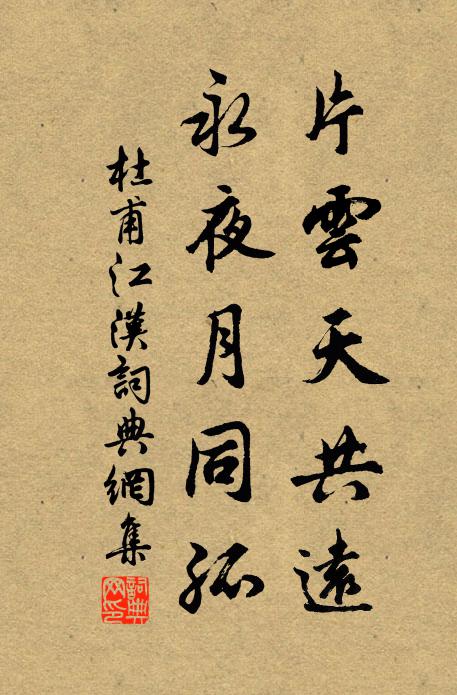 片雲天共遠
永夜月同孤
杜甫江漢詞典網集
詞典
网印